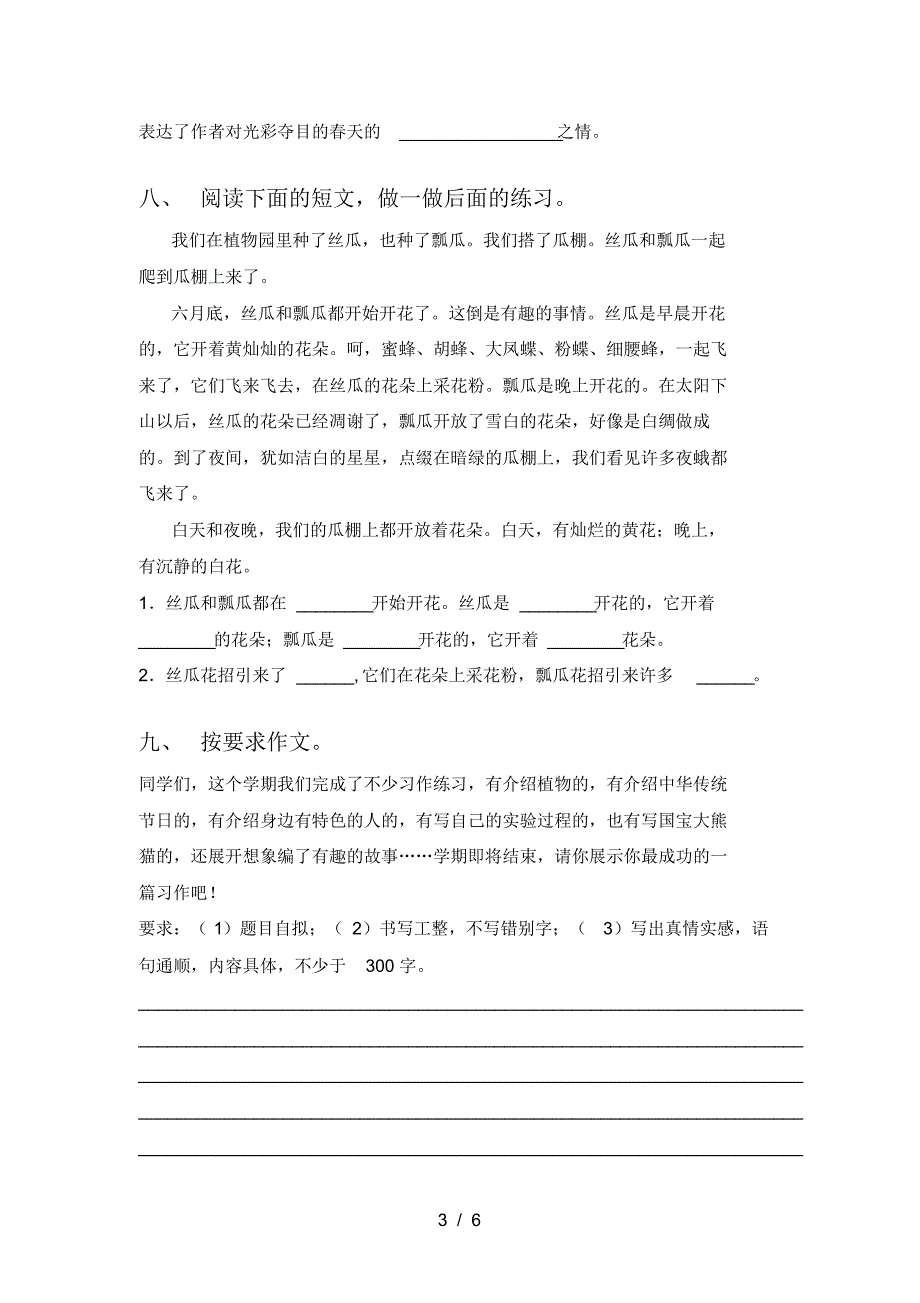 表达了作者对光彩夺目的春天的 _________________之情。
八、 阅读下面的短文，做一做后面的练习。
我们在植物园里种了丝瓜，也种了瓢瓜。我们搭了瓜棚。丝瓜和瓢瓜一起
爬到瓜棚上来了。
六月底，丝瓜和瓢瓜都开始开花了。这倒是有趣的事情。丝瓜是早晨开花
的，它开着黄灿灿的花朵。呵，蜜蜂、胡蜂、大凤蝶、粉蝶、细腰蜂，一起飞
来了，它们飞来飞去，在丝瓜的花朵上采花粉。瓢瓜是晚上开花的。在太阳下
山以后，丝瓜的花朵已经凋谢了，瓢瓜开放了雪白的花朵，好像是白绸做成
的。到了夜间，犹如洁白的星星，点缀在暗绿的瓜棚上，我们看见许多夜蛾都
飞来了。
白天和夜晚，我们的瓜棚上都开放着花朵。白天，有灿烂的黄花；晚上，
有沉静的白花。
1．丝瓜和瓢瓜都在 ________开始开花。丝瓜是 ________开花的，它开着
________的花朵；瓢瓜是 ________开花的，它开着 ________花朵。
2．丝瓜花招引来了 ______,它们在花朵上采花粉，瓢瓜花招引来许多 ______。
九、 按要求作文。
同学们，这个学期我们完成了不少习作练习，有介绍植物的，有介绍中华传统
节日的，有介绍身边有特色的人的，有写自己的实验过程的，也有写国宝大熊
猫的，还展开想象编了有趣的故事……学期即将结束，请你展示你最成功的一
篇习作吧！
要求：（ 1）题目自拟；（ 2）书写工整，不写错别字；（ 3）写出真情实感，语
句通顺，内容具体，不少于 300 字。
3 / 6